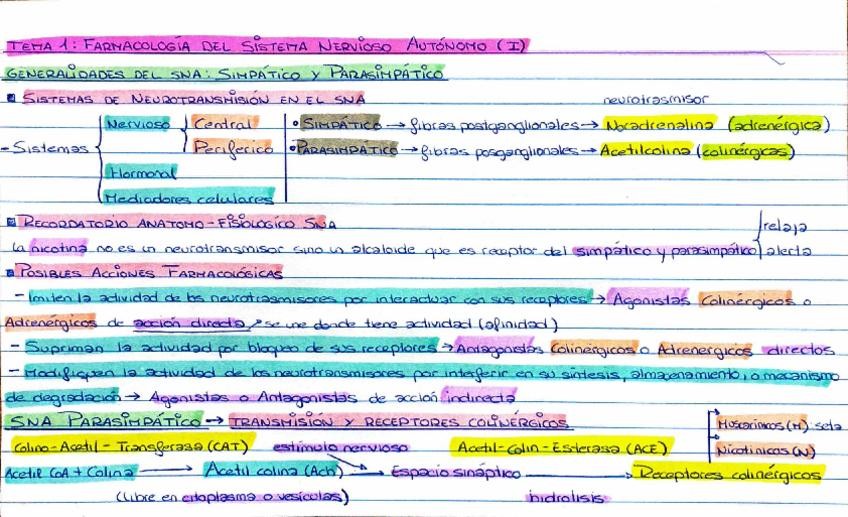 TEMA 1: FARMACOLOGÍA DEL SISTEMA NERVIOSO AUTÓNOMO (I)
GENERALIDADES DEL SNA: SIMPÁTICO Y PARASIMPÁTICO
SISTEMAS DE NEUROTRANSMISIÓN EN EL SNA
neurotrasmisor
Nervioso { Central • SIMPÁTICO → fibras postganglionales → Noradrenalina (adrenérgica)
- Sistemas Periférico • PARASIMPÁTICO → fibras posganglionales → Acetilcolina (colinérgicas)
Hormonal
Mediadores celulares
RECORDATORIO ANATOMO-FISIOLÓGICO SNA
relaja
la nicotina no es un neurotransmisor sino un alcaloide que es receptor del simpático y parasimpático alerta
POSIBLES ACCIONES FARMACOLÓGICAS
- Imiten la actividad de los neurotrasmisores por interactuar con sus receptores → Agonistas Colinérgicos o
Adrenérgicos de acción directa ↗ se une donde tiene actividad (afinidad)
- Supriman la actividad por bloqueo de sus receptores → Antagonistas Colinérgicos o Adrenérgicos directos
- Modifiquen la actividad de los neurotransmisores por interferir en su síntesis, almacenamiento, o mecanismo
de degradación → Agonistas o Antagonistas de acción indirecta
SNA PARASIMPÁTICO → TRANSMISIÓN Y RECEPTORES COLINÉRGICOS
Muscarinicos (M) seta
Colino-Acetil-Transferasa (CAT) estímulo nervioso Acetil-Colin-Esterasa (ACE) Nicotinicos (N)
Acetil CoA + Colina → Acetil colina (Ach) → Espacio sináptico → Receptores colinérgicos
(Libre en citoplasma o vesículas) hidrolisis